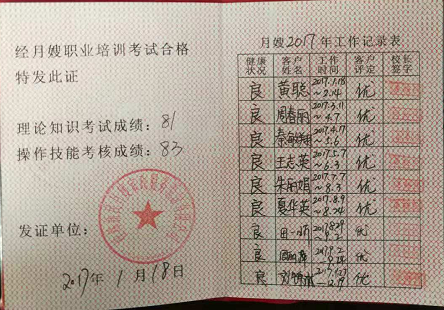 经月嫂职业培训考试合格
特发此证
理论知识考试成绩：81
操作技能考核成绩：83
发证单位：
2017年 1 月 18 日
月嫂2017年工作记录表
健康状况 客户姓名 工作时间 客户评定 校长签字
良 黄聪 2017.1.18～2.24 优
良 周春丽 2017.3.11～4.7 优
良 2017.4.17～5.6 优
良 王志英 优
良 朱丽娟 2017.7.7～8.3 优
良 夏华英 2017.8.9～8.24 优
良 优
良 优
良 优